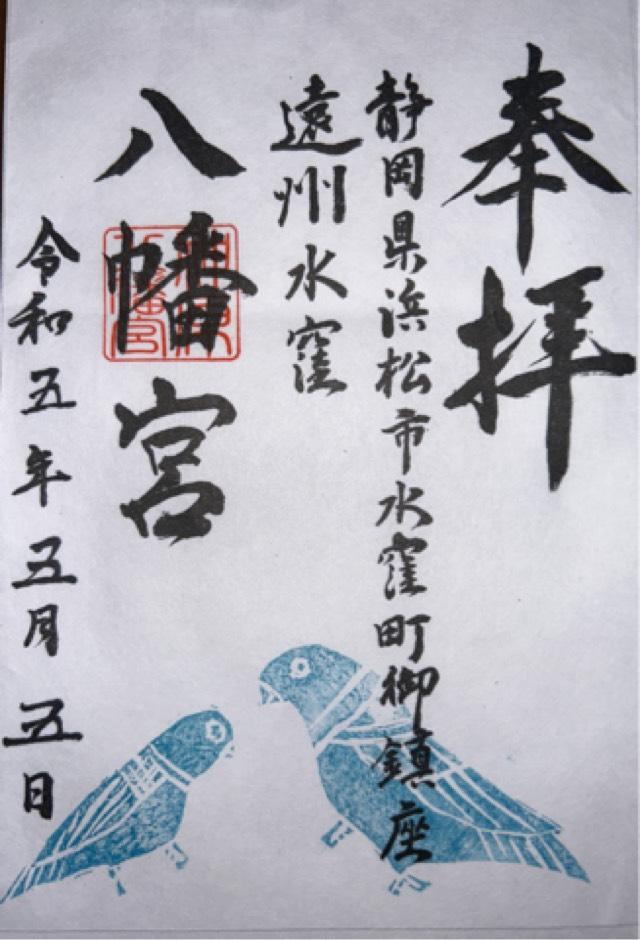 奉拝
静岡県浜松市水窪町御鎮座
遠州水窪
八幡宮
令和五年五月五日